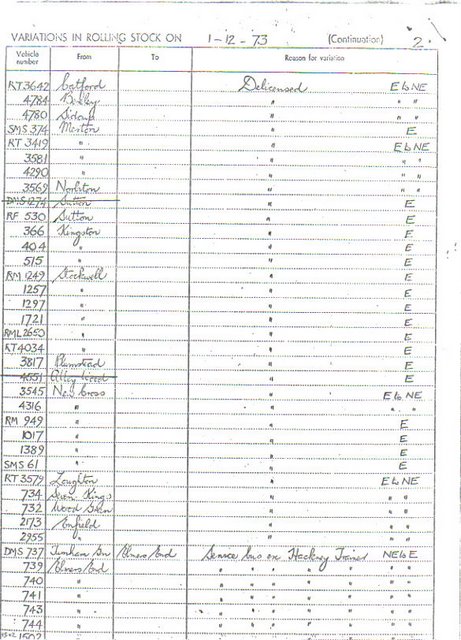 VARIATIONS IN ROLLING STOCK ON 1-12-73 (Continuation) 2
Vehicle number From To Reason for variation
RT 3642 Catford Delicensed E to NE
4784 Bexley " " "
4780 Sidcup " " "
SMS 374 Merton " E
RT 3419 " " E to NE
3581 " " " "
4290 " " " "
3569 Norbiton " " "
DMS 1274 Sutton " E
RF 530 Sutton " E
366 Kingston " E
404 " " E
515 " " E
RM 1249 Stockwell " E
1257 " " E
1297 " " E
1721 " " E
RML 2650 " " E
RT 4034 " " E
3817 Plumstead " E
4551 Abbey Wood " E
3545 New Cross " E to NE
4316 " " " "
RM 949 " " E
1017 " " E
1389 " " E
SMS 61 " " E
RT 3579 Loughton " E to NE
734 Seven Kings " " "
732 Wood Green " " "
2173 Enfield " " "
2955 " " " "
DMS 737 Turnham Gn Elmers End Service bus ex Hackney Trainer NE to E
739 Elmers End " " " " " " "
740 " " " " " " " "
741 " " " " " " " "
743 " " " " " " " "
744 " " " " " " " "
1502